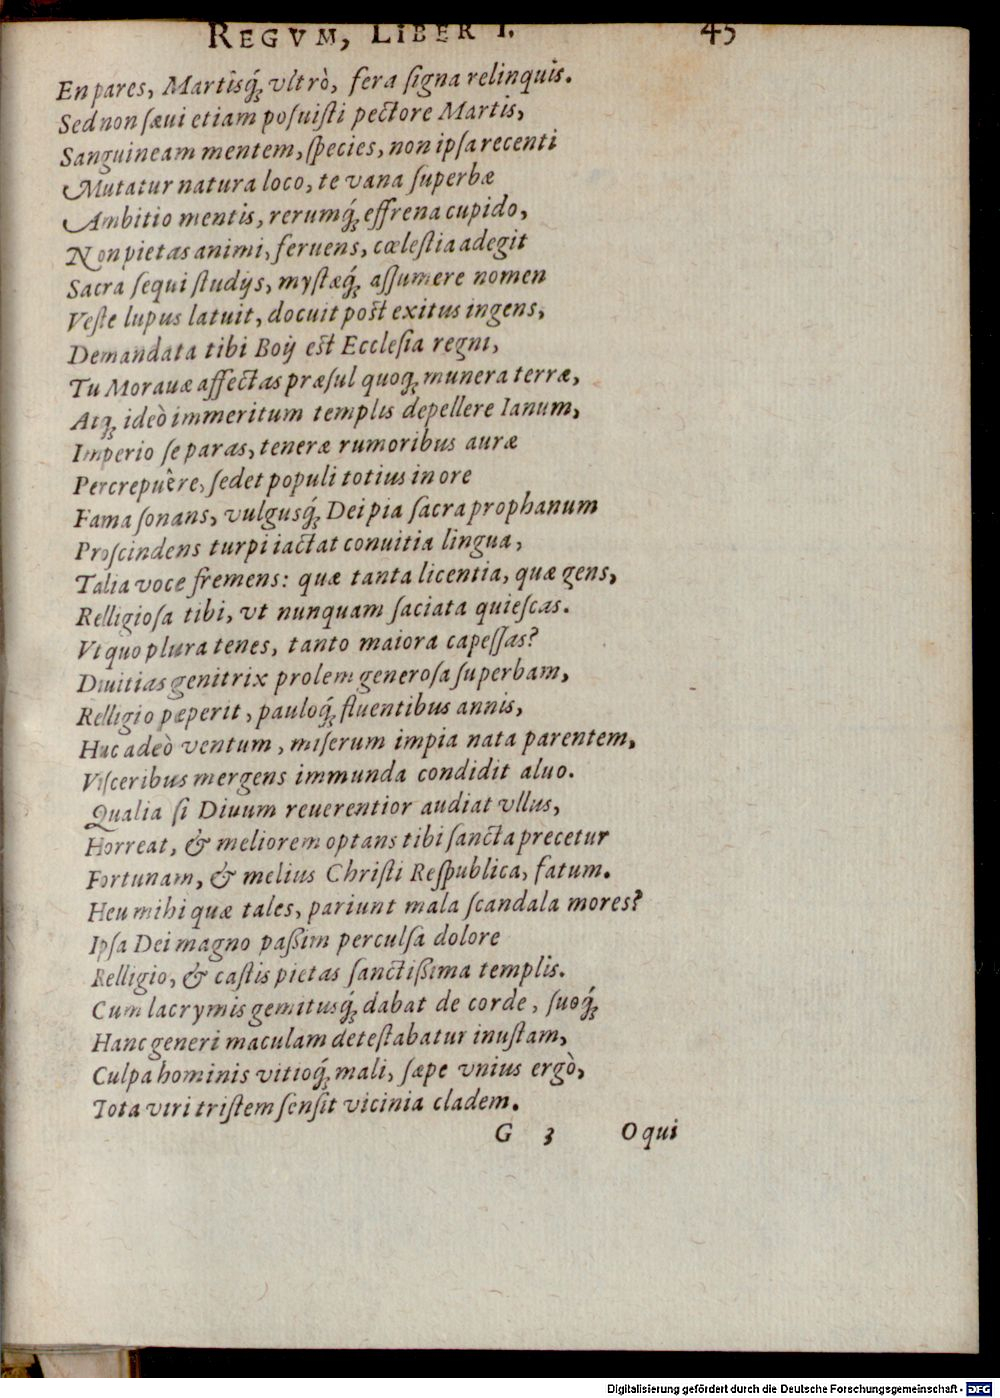 REGVM, LIBER I. 45
En pares, Martisq́ꝫ vltrò, fera ſigna relinquis.
Sed non ſæui etiam poſuiſti pectore Martis,
Sanguineam mentem, ſpecies, non ipſa recenti
Mutatur natura loco, te vana ſuperbæ
Ambitio mentis, rerumq́ꝫ effrena cupido,
Non pietas animi, feruens, cœleſtia adegit
Sacra ſequi ſtudijs, myſtæq́ꝫ aſſumere nomen
Veſte lupus latuit, docuit poſt exitus ingens,
Demandata tibi Boij eſt Eccleſia regni,
Tu Morauæ affectas præſul quoqꝫ munera terræ,
Atqꝫ ideò immeritum templis depellere Ianum,
Imperio ſe paras, teneræ rumoribus auræ
Percrepuêre, ſedet populi totius in ore
Fama ſonans, vulgusq́ꝫ Dei pia ſacra prophanum
Proſcindens turpi iactat conuitia lingua,
Talia voce fremens: quæ tanta licentia, quæ gens,
Relligioſa tibi, vt nunquam ſaciata quieſcas.
Vt quo plura tenes, tanto maiora capeſſas?
Diuitias genitrix prolem generoſa ſuperbam,
Relligio pæperit, pauloq́ꝫ fluentibus annis,
Huc adeò ventum, miſerum impia nata parentem,
Viſceribus mergens immunda condidit aluo.
Qualia ſi Diuum reuerentior audiat vllus,
Horreat, & meliorem optans tibi ſancta precetur
Fortunam, & melius Chriſti Reſpublica, fatum.
Heu mihi quæ tales, pariunt mala ſcandala mores?
Ipſa Dei magno paßim perculſa dolore
Relligio, & caſtis pietas ſanctißima templis.
Cum lacrymis gemitusq́ꝫ dabat de corde, ſuoq́ꝫ
Hanc generi maculam deteſtabatur inuſtam,
Culpa hominis vitioq́ꝫ mali, ſæpe vnius ergò,
Tota viri triſtem ſenſit vicinia cladem.
G 3 O qui
Digitalisierung gefördert durch die Deutsche Forschungsgemeinschaft - DFG